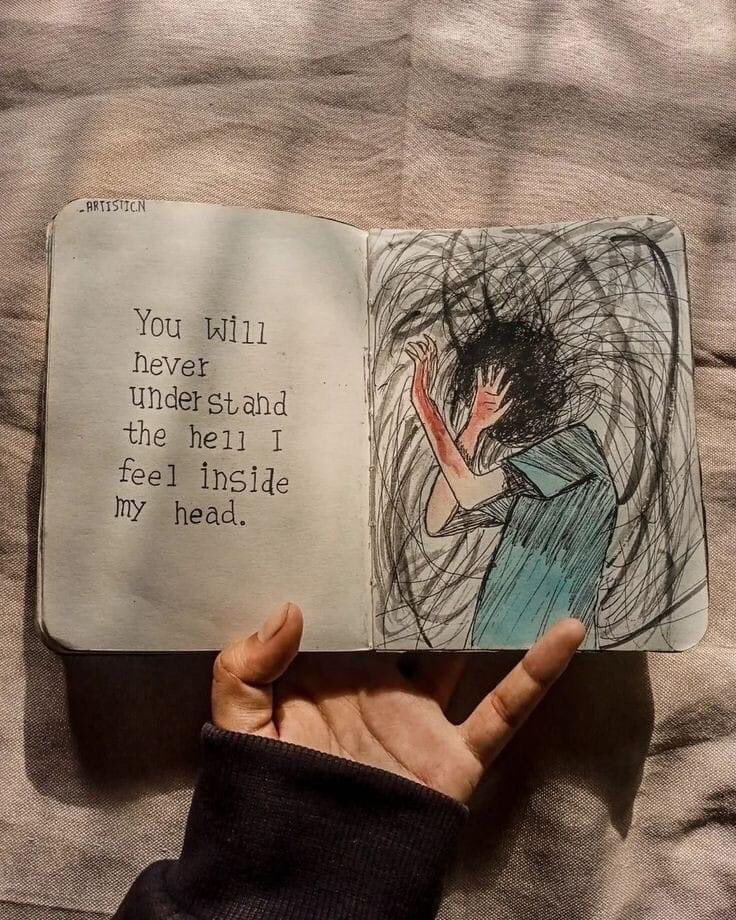 _ARTISTIC.N
You will
never
understand
the hell I
feel inside
my head.